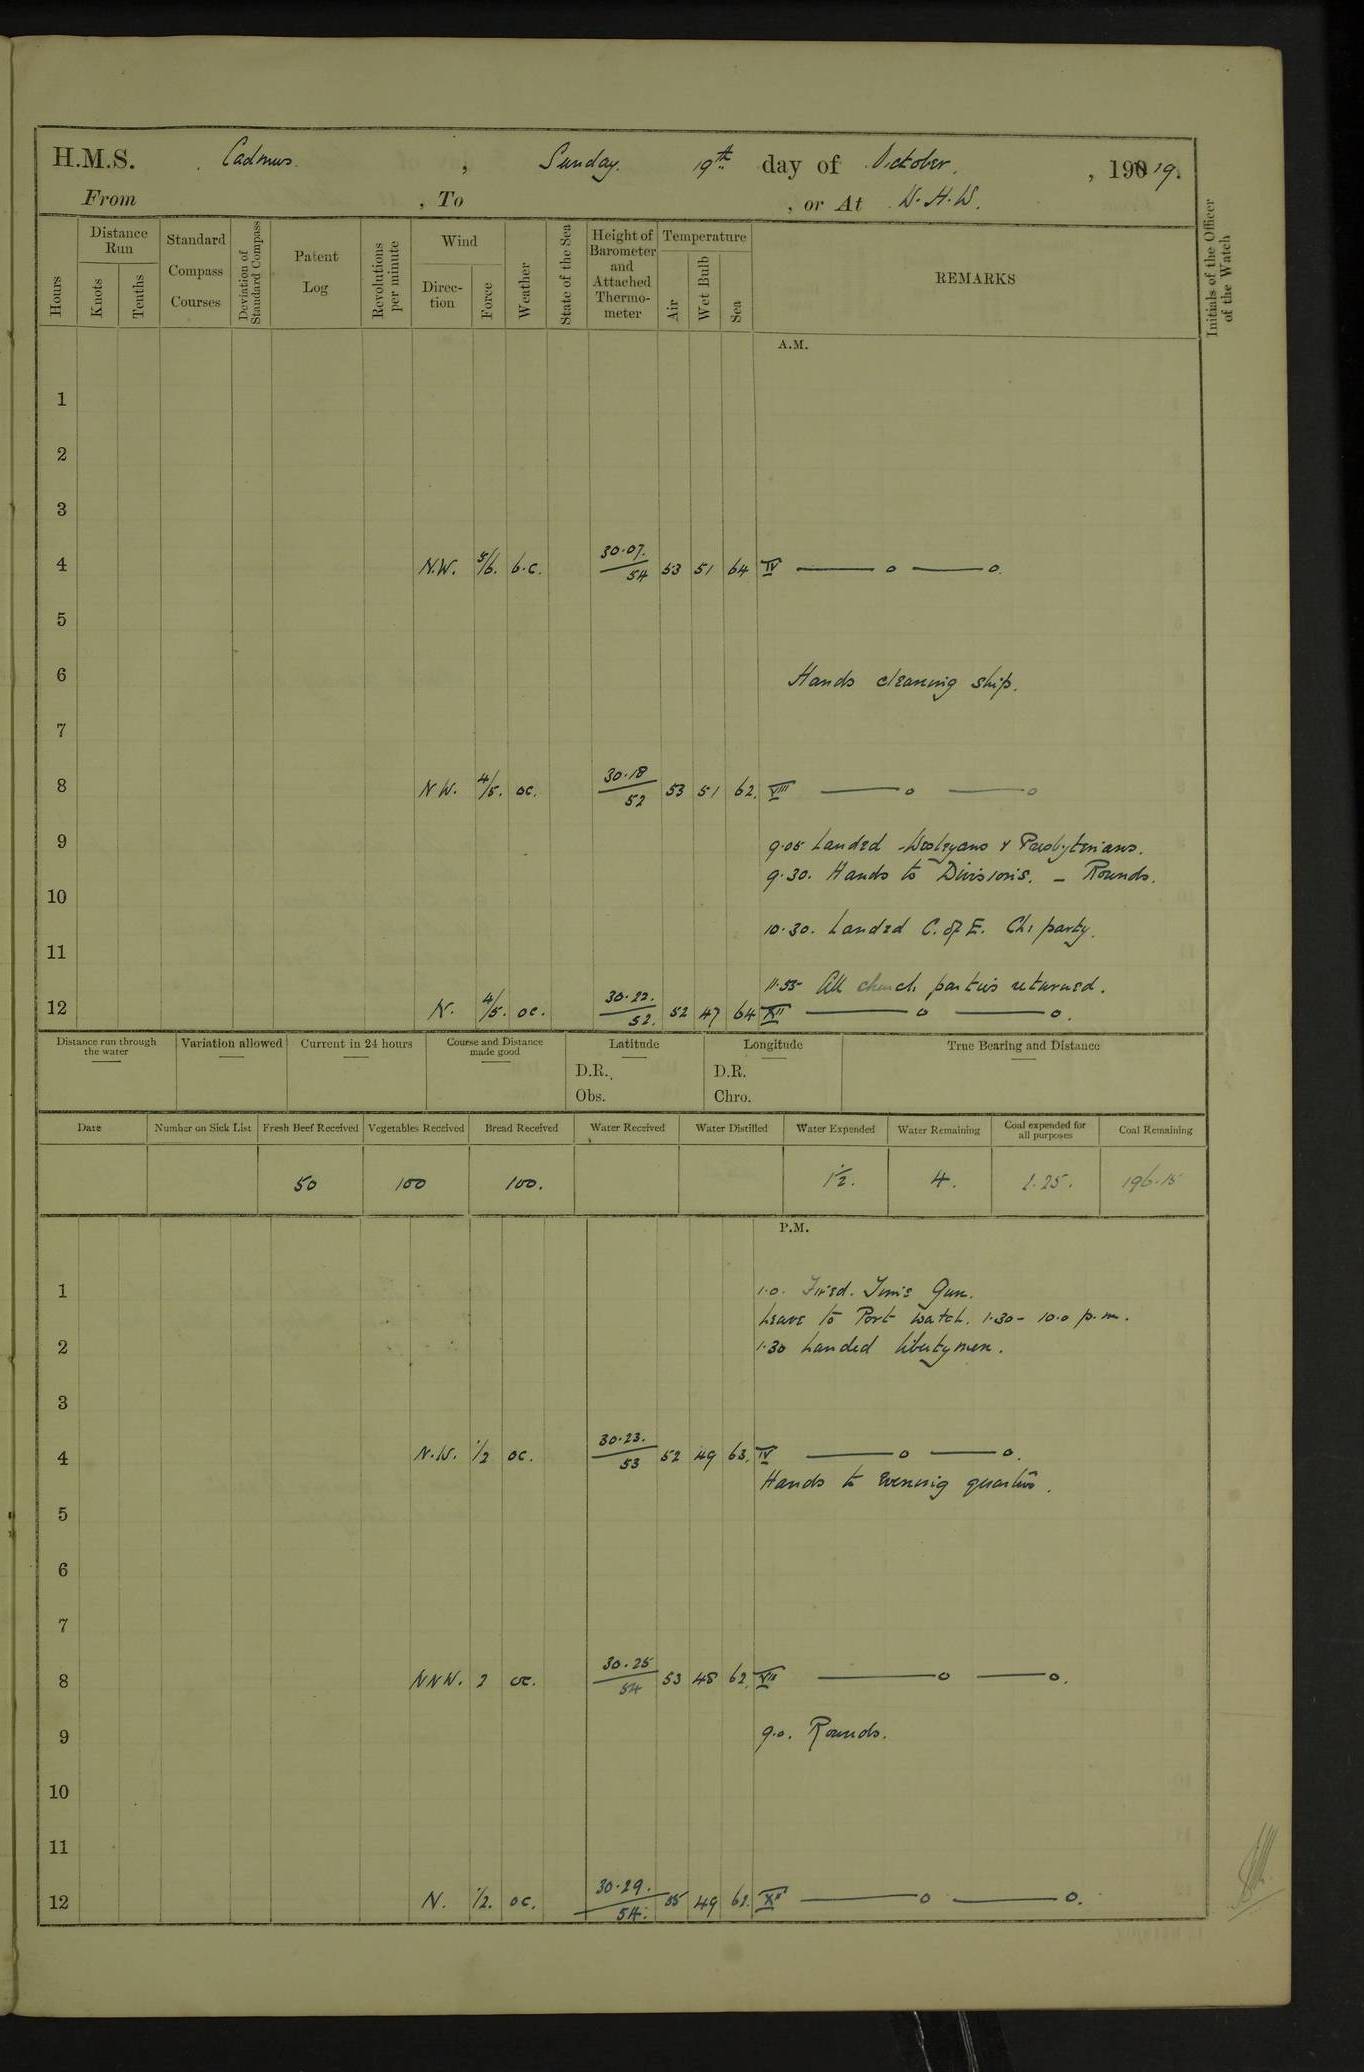 H.M.S. Cadmus. , Sunday. 19th day of October. , 19019.
From , To , or At W.H.W.
Hours
Distance Run
Knots
Tenths
Standard Compass Courses
Deviation of Standard Compass
Patent Log
Revolutions per minute
Wind
Direction
Force
Weather
State of the Sea
Height of Barometer and Attached Thermometer
Temperature
Air
Wet Bulb
Sea
REMARKS
Initials of the Officer of the Watch
A.M.
1
2
3
4 N.W. 5/6. b.c. 30.07. 54 53 51 64 IV
5
6 Hands cleaning ship.
7
8 N W. 4/5. oc. 30.18 52 53 51 62. VIII
9 9.05 Landed Wesleyans & Presbyterians.
9.30. Hands to Divisions. – Rounds.
10
10.30. Landed C. of E. Ch: party.
11
11.55 All church parties returned.
12 N. 4/5. oc. 30.22. 52. 52 47 64 XII
Distance run through the water
Variation allowed
Current in 24 hours
Course and Distance made good
Latitude
D.R.
Obs.
Longitude
D.R.
Chro.
True Bearing and Distance
Date Number on Sick List Fresh Beef Received Vegetables Received Bread Received Water Received Water Distilled Water Expended Water Remaining Coal expended for all purposes Coal Remaining
50 100 100. 1½. 4. 1.25. 196.15
P.M.
1 1.0. Fired. Time Gun.
Leave to Port Watch. 1.30 – 10.0 p.m.
2 1.30 Landed libertymen.
3
4 N.W. 1/2 oc. 30.23. 53 52 49 63. IV
Hands to Evening quarters.
5
6
7
8 NNW. 2 oc. 30.25 54 53 48 62. VIII
9 9.0. Rounds.
10
11
12 N. 1/2. oc. 30.29. 54. 55 49 62. XII